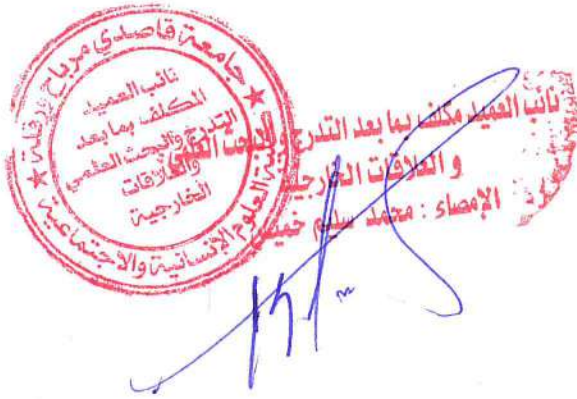 جامعة قاصدي مرباح ورقلة
كلية العلوم الإنسانية والاجتماعية
نائب العميد
المكلف بما بعد
التدرج والبحث العلمي
والعلاقات
الخارجية
نائب العميد مكلف بما بعد التدرج والبحث العلمي
و العلاقات الخارجية
الإمضاء : محمد سليم خميس